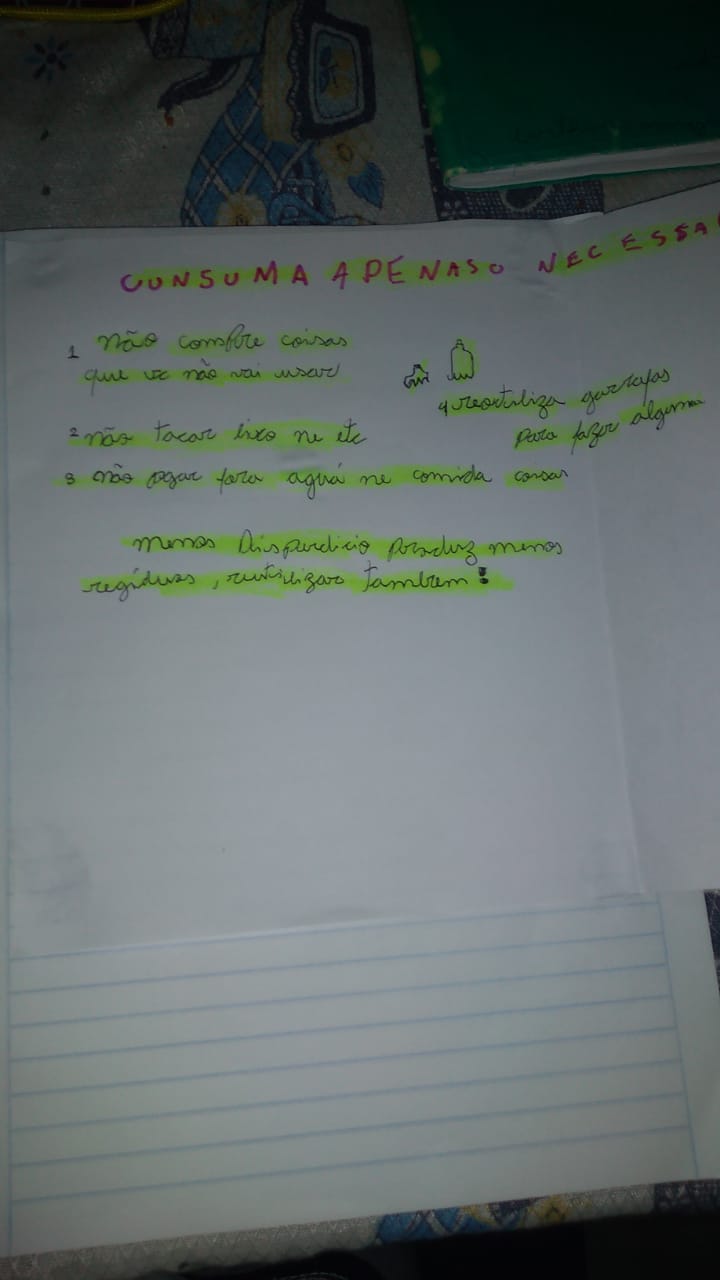 CONSUMA APENAS O NECESSA
1 não compre coisas
que vc não vai usar
4 reortiliza garrafas
para fazer alguma
2 não tacar lixo ne etc
3 não jogar fora aguá ne comida coisas
menos Disperdicio produz menos
regíduos, rutilizar tambem!